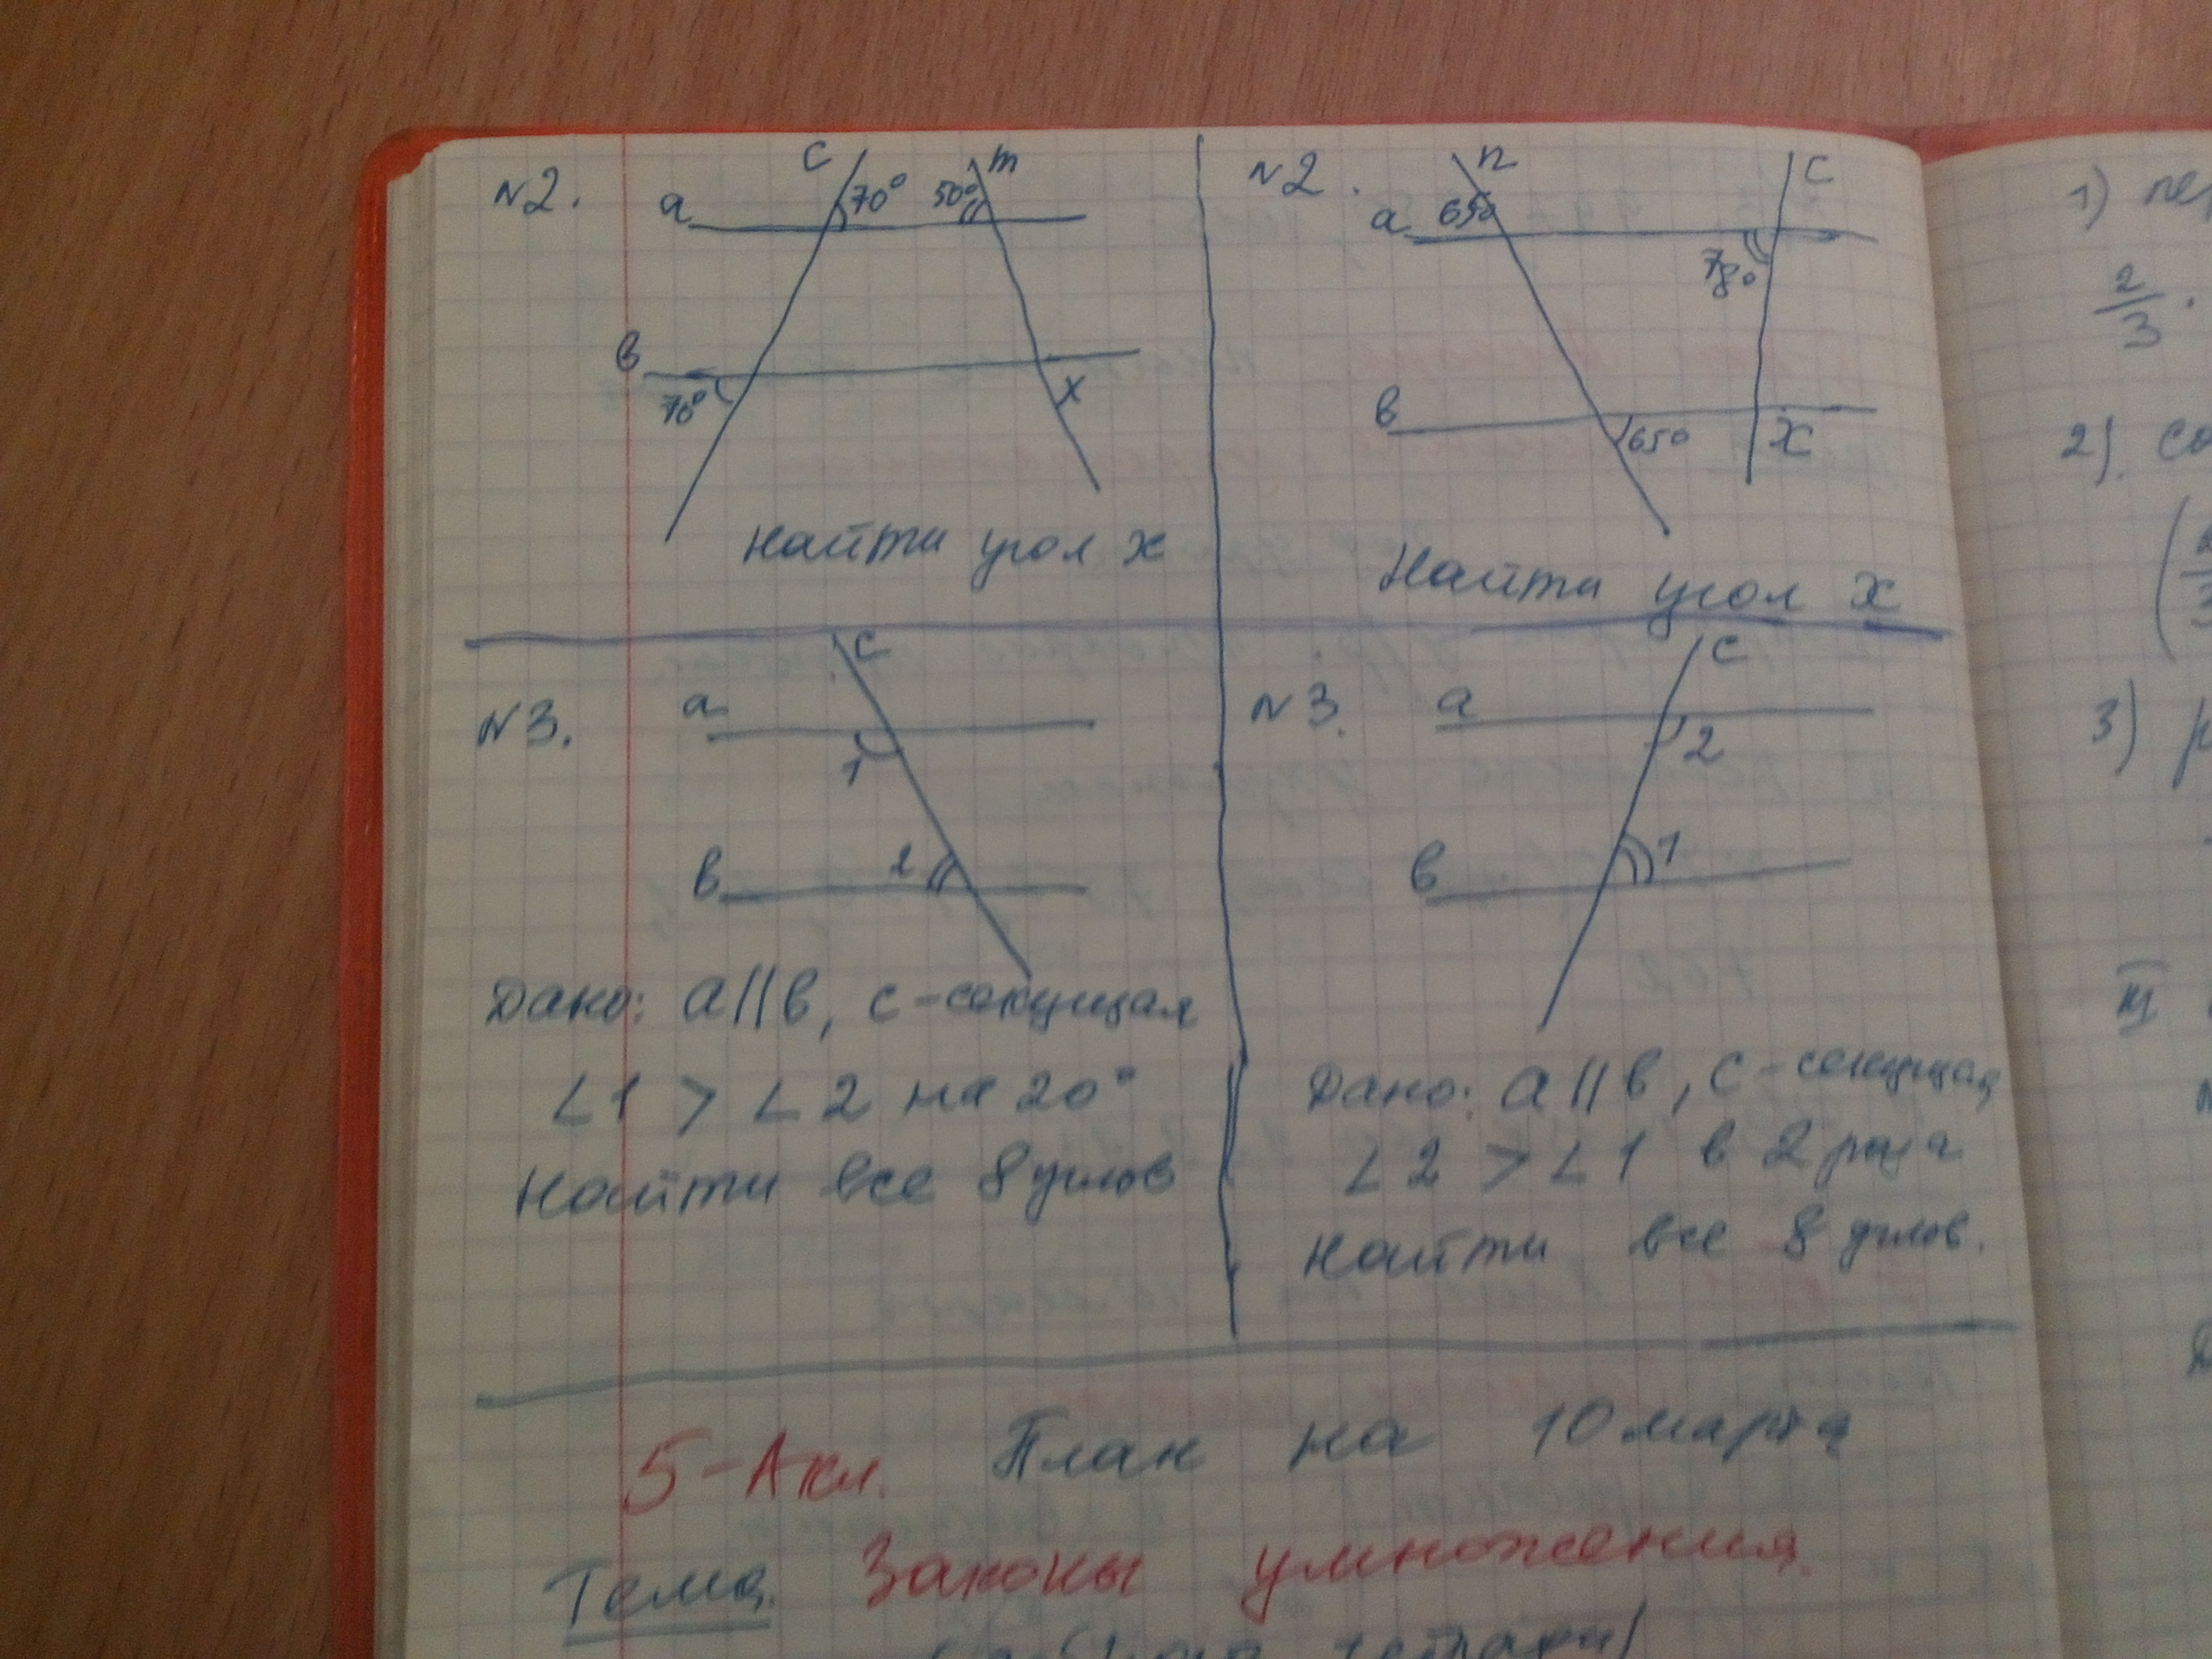 N2.
c 70° 50° m
a
в
70° x
Найти угол x
N2.
n c
a 65°
78°
в
65° x
Найти угол x
N3.
c
a
1
2
в
Дано: a||в, c-секущая
∠1 > ∠2 на 20°
Найти все 8 углов
N3.
c
a
2
1
в
Дано: a||в, c-секущая
∠2 > ∠1 в 2 раза
Найти все 8 углов.
5-А кл. План на 10 марта
Тема. Законы умножения.
1) пер
2/3 ·
2).
3)